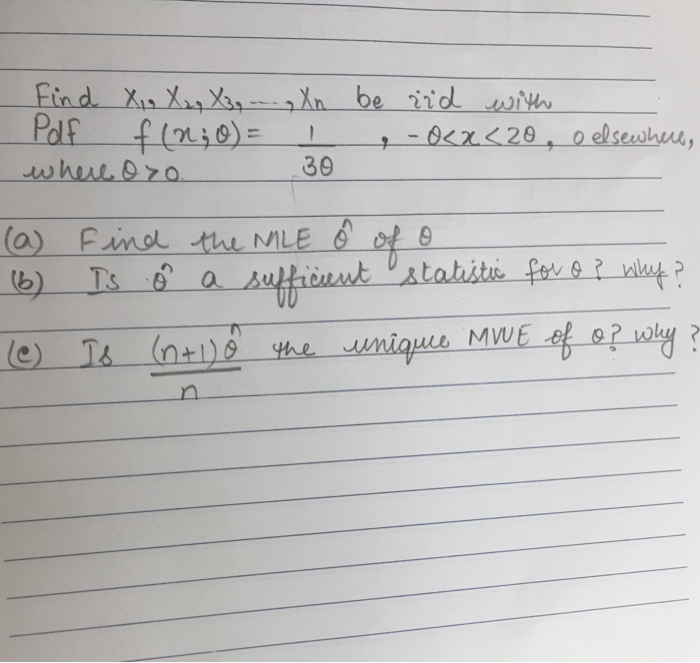 Find X₁, X₂, X₃, ----, Xn be iid with
Pdf f(x;θ) = 1/3θ , -θ<x<2θ, 0 elsewhere,
where θ>0.
(a) Find the MLE θ̂ of θ
(b) Is θ̂ a sufficient statistic for θ? Why?
(c) Is (n+1)θ̂/n the unique MVUE of θ? why?